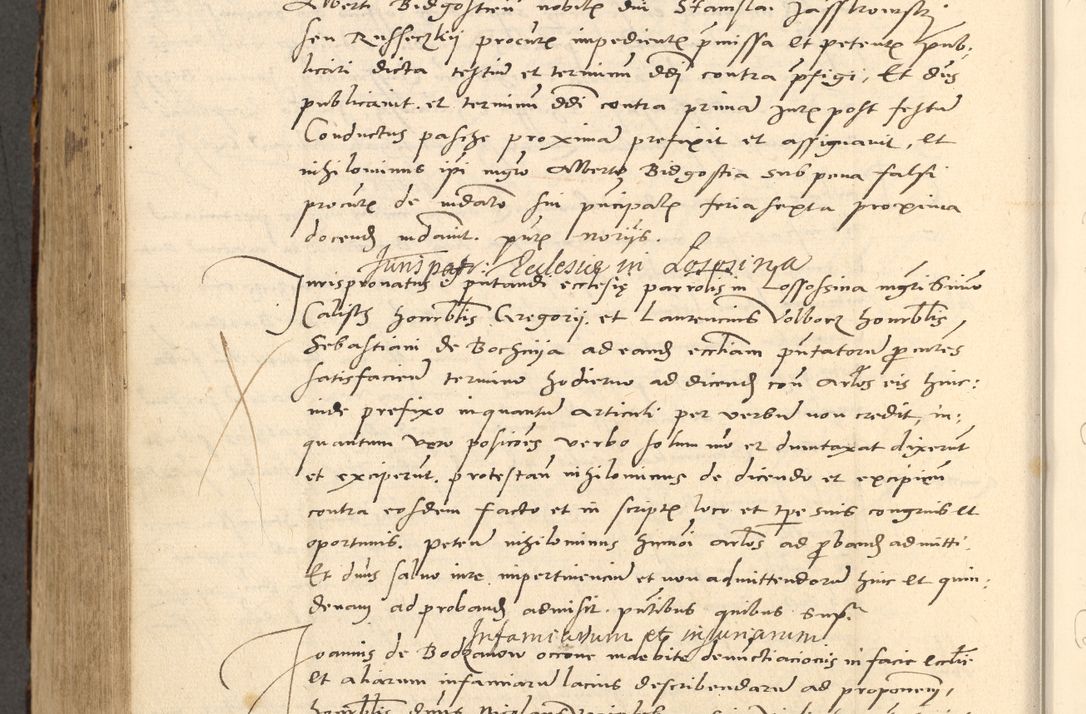 Alberti Bidgostien nobilis dni Stanislai Jasstrowski
seu Russeczkij procur impedientis pmissa et petentis pub-
licari dicta testium et terminum ddi contra pfigi. Et dns
publicavit et terminum ddi contra primam Juris post festum
Conductus pasche proximam prefixit et assignavit, et
nihilominus ipi mgro Alberto Bidgostia sub pena falsi
procur de mdato sui pncipalis feria sexta proxima
docend mdavit. pntibus notariis.
Jurispatr: Ecclesiae in Lososina
Jurispronatus pntandi ecclesię parrolis in Lossosina mgri Simo
Calistus honorabilis Gregorij et Laurencius Volborz honorblis
Sebastiani de Bochnija ad eandem eccliam pntatorum pcures
satisfaciem termino hodierno ad dicend con arlos eis hinc-
inde prefixo in quantum articuli per verbum non credit, in-
quantum vero posicoes verbo solum no et dumtaxat dixerunt
et exciperunt. protestan nihilominus de dicendo et excipien
contra eosdem facto et in scriptis loco et tpe suis congruis et
oportunis. petens nihilominus hmoi arlos ad proband admitti.
Et dnus salvo jure impertinencium et non admittendorum hinc et quin-
denam ad proband admisit. pntibus quibus supra
Infamiarum et injuriarum
Joannis de Bodzanow occone indebite denunctiacionis in facie ecclie
et aliarum infamiarum lacius describendarum ad proponem,
honorblis dnus Nicolaus